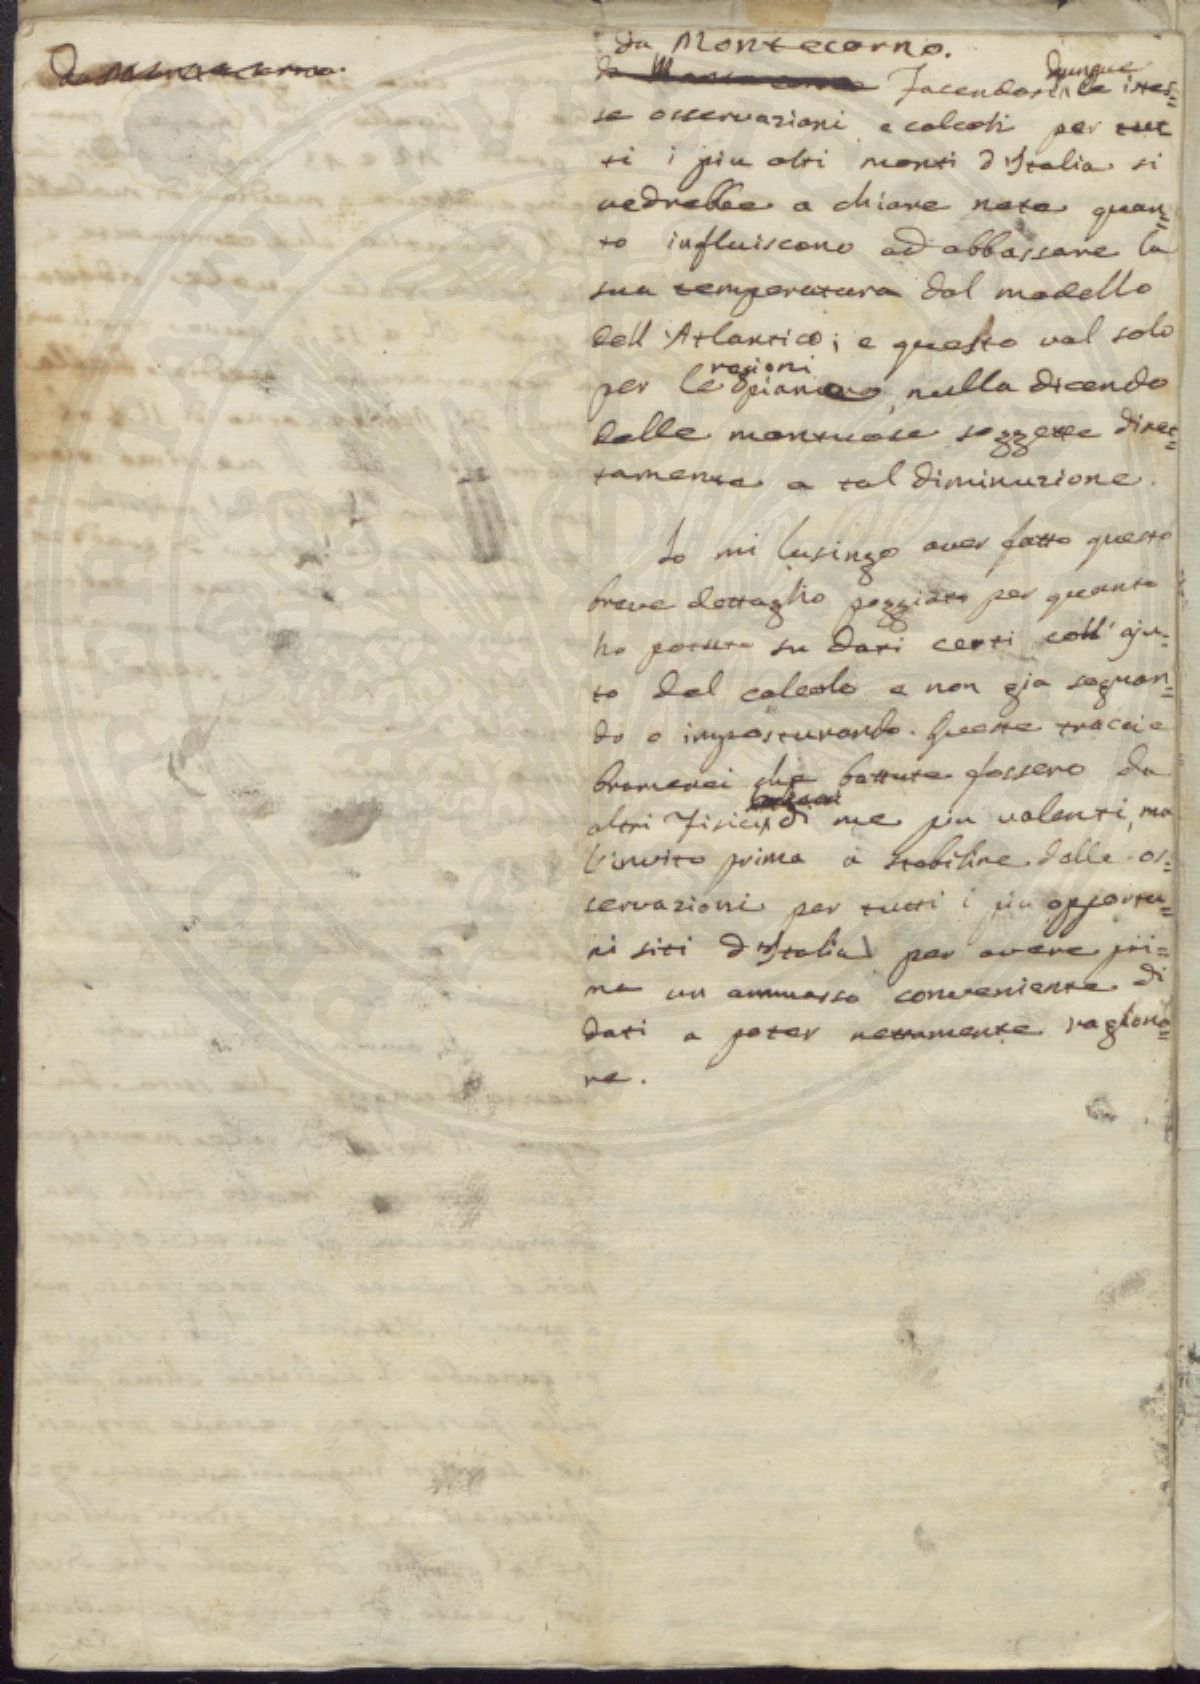 da Montecorno
da Montecorno.
da Monte corno Facendosi dunque le istes=
se osservazioni e calcoli per tut
ti i piu alti monti d'Italia si
vedrebbe a chiare note quan=
to influiscono ad abbassare la
sua temperatura dal modello
dell'Atlantico; e questo val solo
per le regioni piane, nulla dicendo
delle montuose soggette diret=
tamente a tal diminuzione.
Io mi lusingo aver fatto questo
breve dettaglio poggiato per quanto
ho potuto su dati certi coll'aju=
to del calcolo e non gia sognan=
do o imposturando. Queste traccie
bramerei che battute fossero da
altri Fisici di me piu valenti, ma
l'invito prima a stabilire delle os=
servazioni per tutti i piu opportu=
ni siti d'Italia per avere pri=
ma un ammasso conveniente di
dati a poter nettamente ragiona=
re.